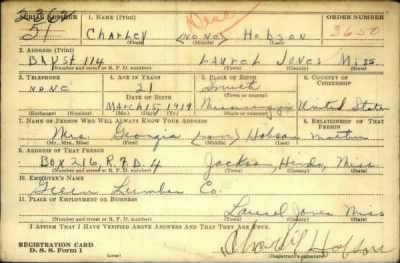 SERIAL NUMBER 1. NAME (Print) ORDER NUMBER
51 Charley (NONE) Hobson 3650
(First) (Middle) (Last)
2. ADDRESS (Print)
114 Laurel Jones Miss
(Number and street or R. F. D. number) (Town) (County) (State)
3. TELEPHONE 4. AGE IN YEARS 5. PLACE OF BIRTH 6. COUNTRY OF CITIZENSHIP
NONE 21 Smith
DATE OF BIRTH (Town or county)
March 15, 1919 Mississippi United States
(Exchange) (Number) (Mo.) (Day) (Yr.) (State or country)
7. NAME OF PERSON WHO WILL ALWAYS KNOW YOUR ADDRESS 8. RELATIONSHIP OF THAT PERSON
Mrs. Georgia (none) Hobson Mother
(Mr., Mrs., Miss) (First) (Middle) (Last)
9. ADDRESS OF THAT PERSON
Box 216, R.F.D. 4 Jackson, Hinds, Miss
(Number and street or R. F. D. number) (Town) (County) (State)
10. EMPLOYER'S NAME
Green Lumber Co.
11. PLACE OF EMPLOYMENT OR BUSINESS
Laurel Jones Miss
(Number and street or R. F. D. number) (Town) (County) (State)
I AFFIRM THAT I HAVE VERIFIED ABOVE ANSWERS AND THAT THEY ARE TRUE.
REGISTRATION CARD
D. S. S. Form 1 Hobson
(Registrant's signature)